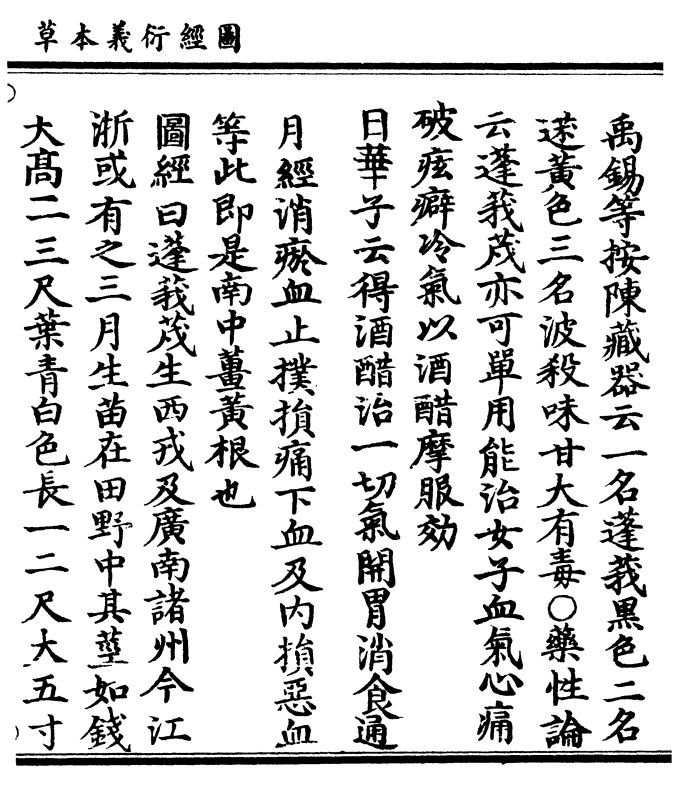 圖經衍義本草
禹錫等按陳藏器云一名蓬莪黑色二名
蒁黃色三名波殺味甘大有毒○藥性論
云蓬莪茂亦可單用能治女子血氣心痛
破痃癖冷氣以酒醋摩服効
日華子云得酒醋治一切氣開胃消食通
月經消瘀血止撲損痛下血及內損惡血
等此即是南中薑黃根也
圖經曰蓬莪茂生西戎及廣南諸州今江
浙或有之三月生苗在田野中其莖如錢
大高二三尺葉青白色長一二尺大五寸